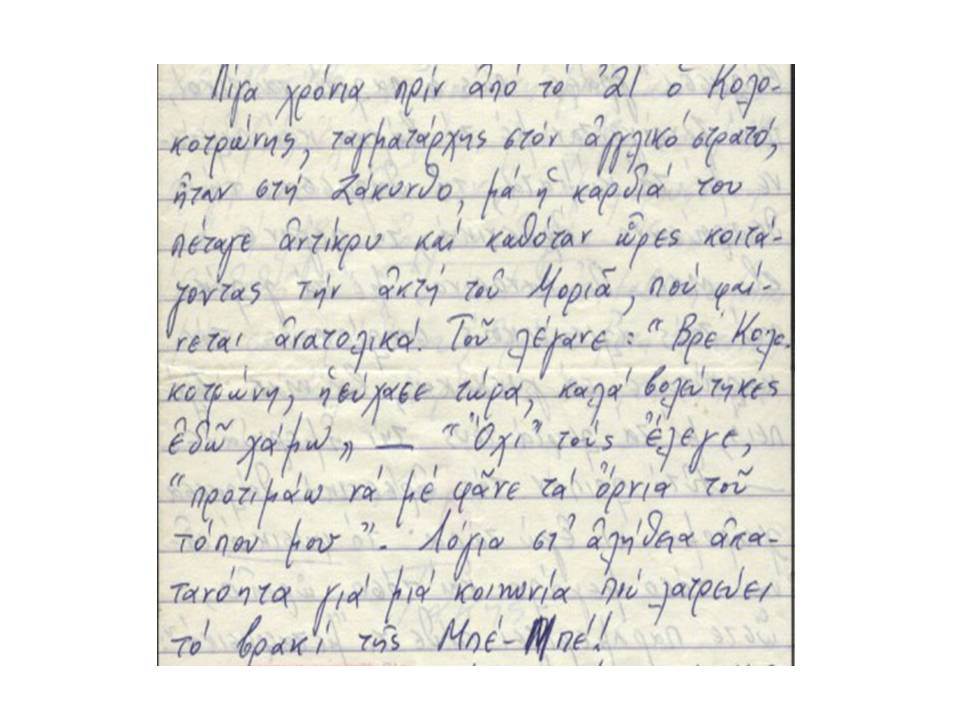 Λίγα χρόνια πρίν ἀπό τό '21 ὁ Κολο-
κοτρώνης, ταγματάρχης στόν ἀγγλικό στρατό,
ἦταν στή Ζάκυνθο, μά ἡ καρδιά του
πέταγε ἀντίκρυ καί καθόταν ὧρες κοιτά-
ζοντας τήν ἀκτή τοῦ Μοριᾶ, πού φαί-
νεται ἀνατολικά. Τοῦ λέγανε: "Βρέ Κολο-
κοτρώνη, ἡσύχασε τώρα, καλά βολεύτηκες
ἐδῶ χάμω" — "Ὄχι" τούς ἔλεγε,
"προτιμάω νά μέ φᾶνε τά ὄρνια τοῦ
τόπου μου". Λόγια στ' ἀλήθεια ἀκα-
τανόητα γιά μιά κοινωνία πού λατρεύει
τό βρακί τῆς Μπέ-Μπέ!